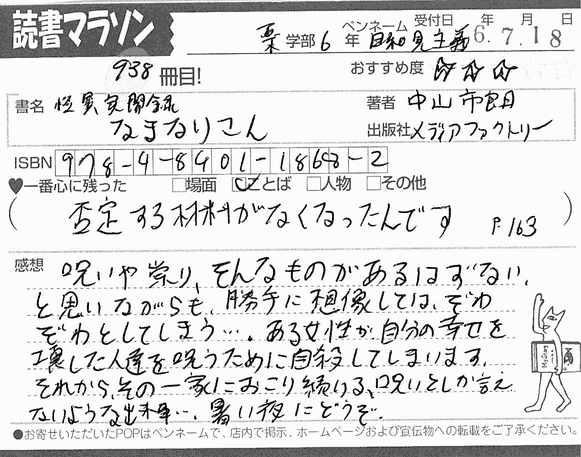 読書マラソン
薬学部6年 ペンネーム 日和見主義 受付日 6年7.月18日
938冊目! おすすめ度 ☆☆☆☆☆
書名 怪異実聞録
なまなりさん
著者 中山市朗
出版社 メディアファクトリー
ISBN 978-4-8401-1868-2
♥一番心に残った □場面 ☑ことば □人物 □その他
(否定する材料がなくなったんです P.163)
感想 呪いや祟り、そんなものがあるはずない、
と思いながらも、勝手に想像しては、ぞわ
ぞわとしてしまう…。ある女性が自分の幸せを
壊した人達を呪うために自殺してしまいます。
それから、その一家におこり続ける、呪いとしか言え
ないような出来事…。暑い夜にどうぞ。
●お寄せいただいたPOPはペンネームで、店内で掲示、ホームページおよび宣伝物への転載をご了承ください。